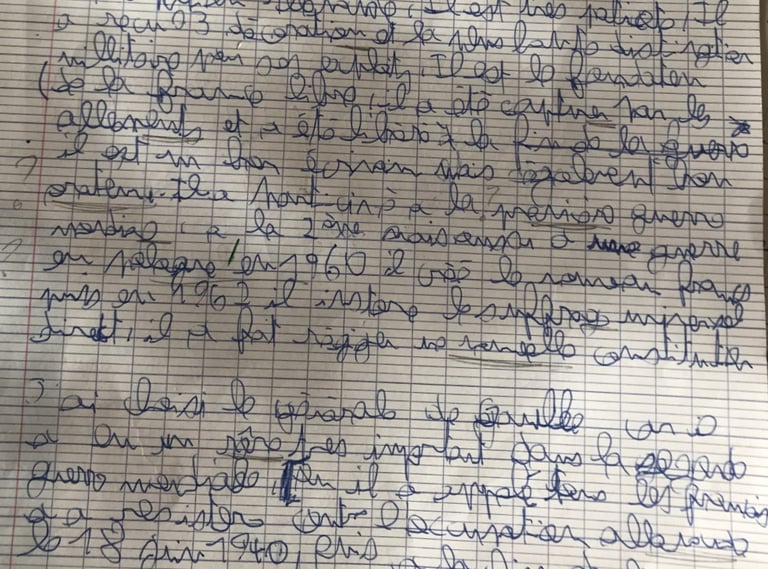 Il est très patriote, Il
a reçu 3 décoration et la plus haute distinction
millitaire par ses exploits. Il est le fondateur
(de la France libre, il a été capturer par les
allemends et a été libéré à la fin de la guerre
il est un bon écrivain mais également bon
orateur. Il a participé à la première guerre
mondiale, a la 2ème aussi une guerre
en pologne en 1960 il créé le nouveau franc
puis en 1962 il instore le suffrage universel
direct, il a fait rédiger une nouvelle constitution
J'ai choisi le générale de Gaulle car
a eu un rôle très important dans la segonde
guerre mondiale, il a appelé tous les français
a resister contre l'occupation allemande
le 18 juin 1940, puis a la fin de